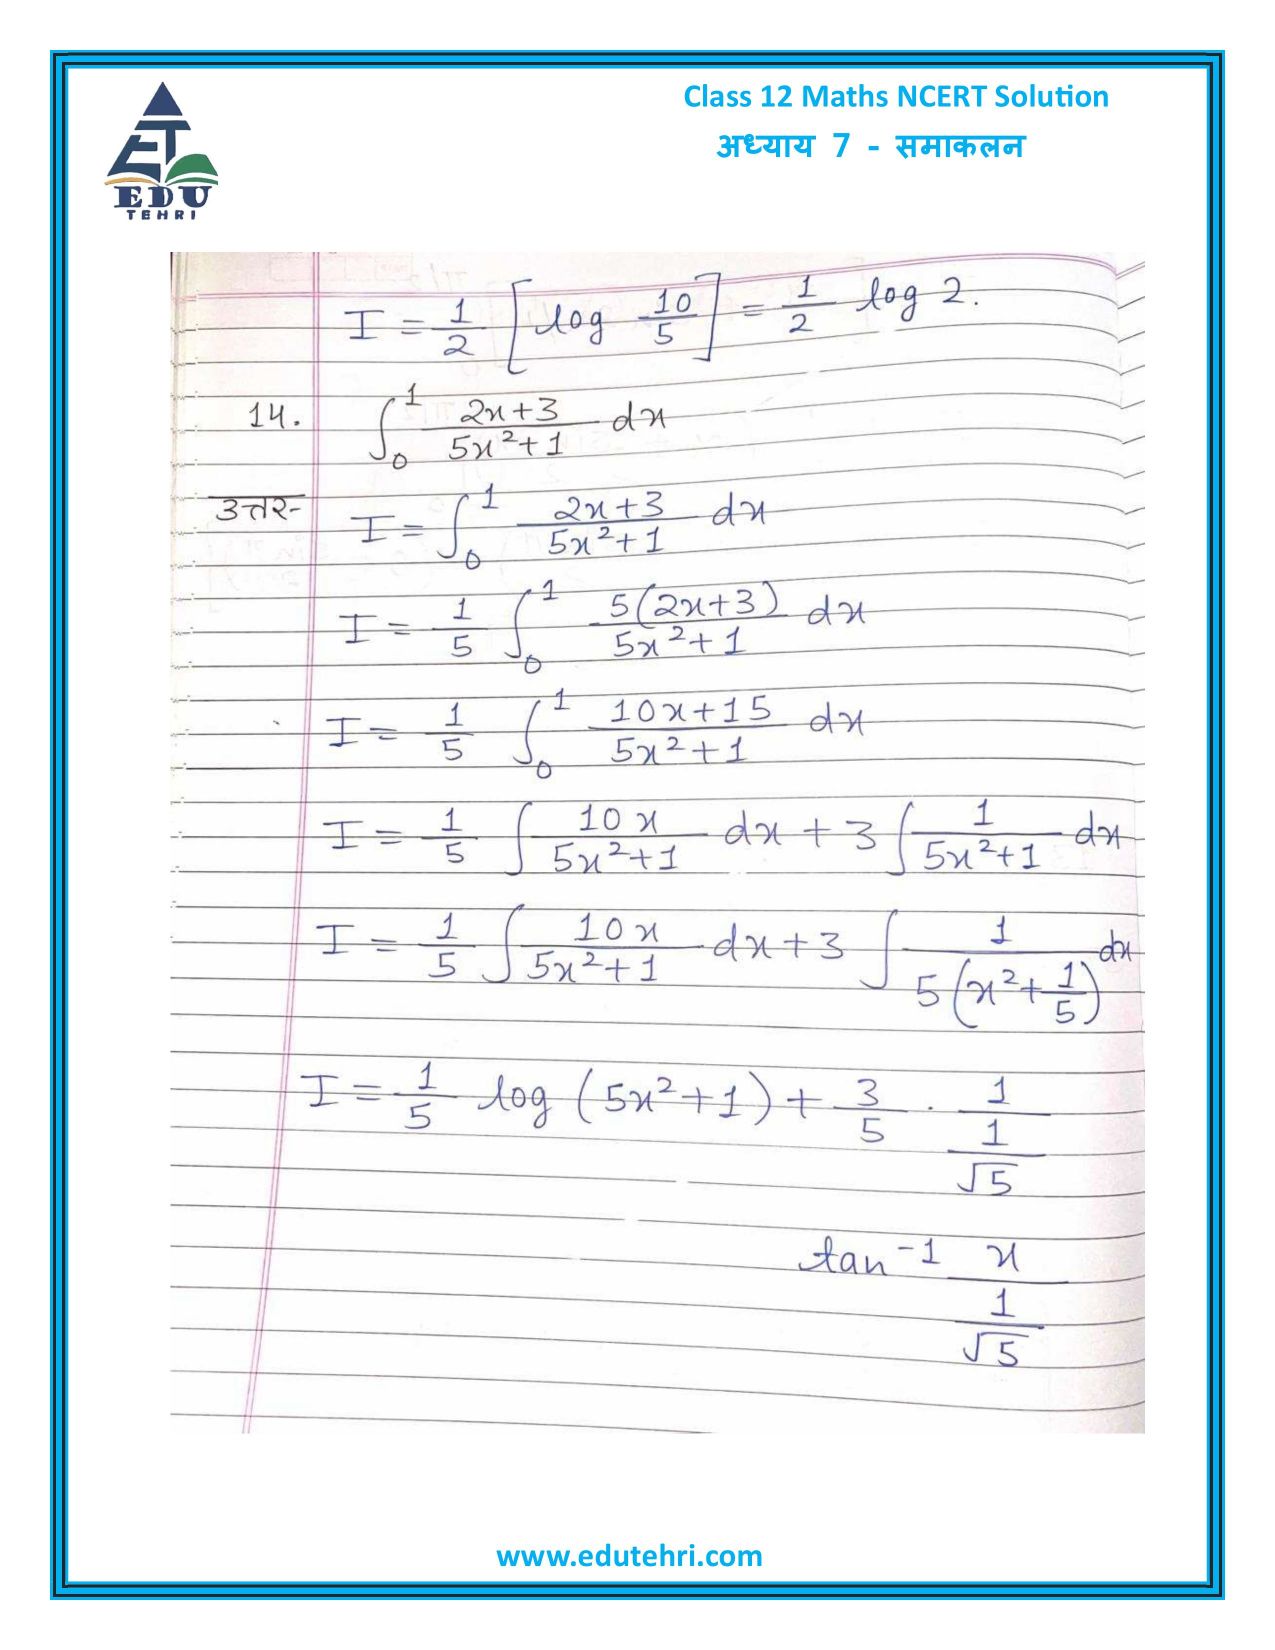 Class 12 Maths NCERT Solution
अध्याय 7 - समाकलन
EDU
TEHRI
I = 1/2 [log 10/5] = 1/2 log 2.
14. ∫₀¹ (2x+3)/(5x²+1) dx
उत्तर- I = ∫₀¹ (2x+3)/(5x²+1) dx
I = 1/5 ∫₀¹ 5(2x+3)/(5x²+1) dx
I = 1/5 ∫₀¹ (10x+15)/(5x²+1) dx
I = 1/5 ∫ 10x/(5x²+1) dx + 3 ∫ 1/(5x²+1) dx
I = 1/5 ∫ 10x/(5x²+1) dx + 3 ∫ 1/(5(x²+1/5)) dx
I = 1/5 log (5x²+1) + 3/5 · 1/(1/√5)
tan⁻¹ x/(1/√5)
www.edutehri.com